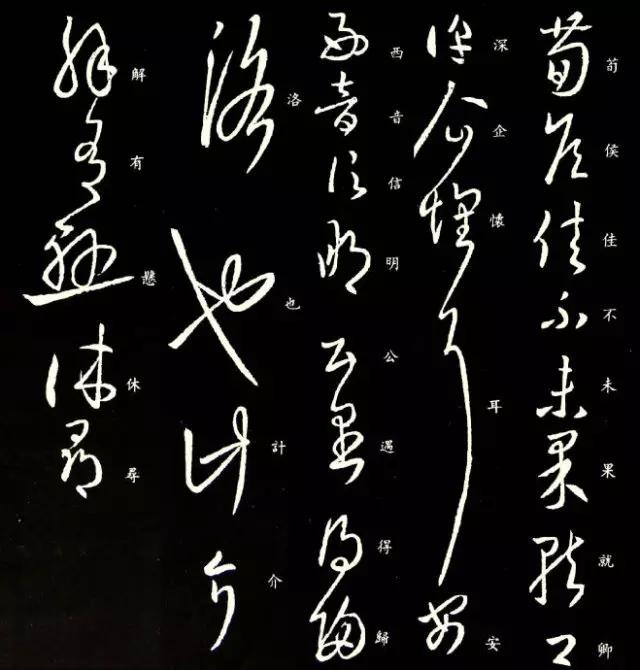 荀侯佳不未果就卿
深企懷耳安
西音信明公遇得歸
洛也計介
解有懸休尋